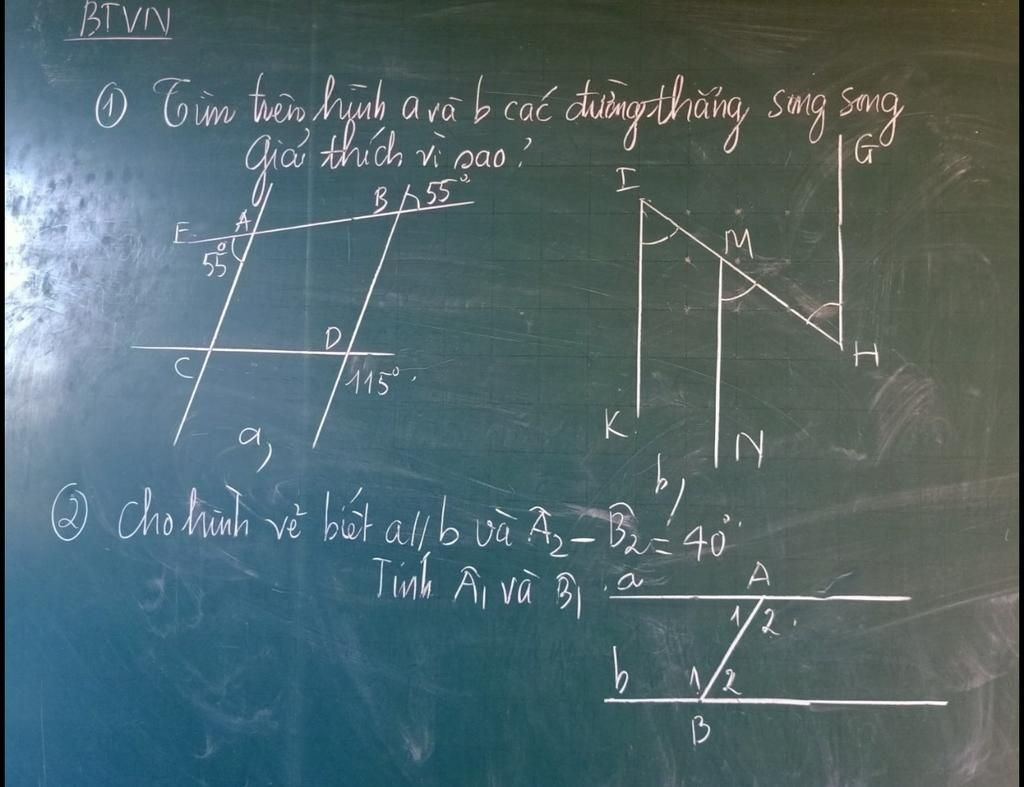 BTVN
① Tìm trên hình a và b các đường thẳng song song
giải thích vì sao?
E A B 55°
55°
C D 115°
a,
I G
M
H
K N
b,
② Cho hình vẽ biết a//b và Â₂ - B̂₂ = 40°
Tính Â₁ và B̂₁
a A
1 2
b 1 2
B